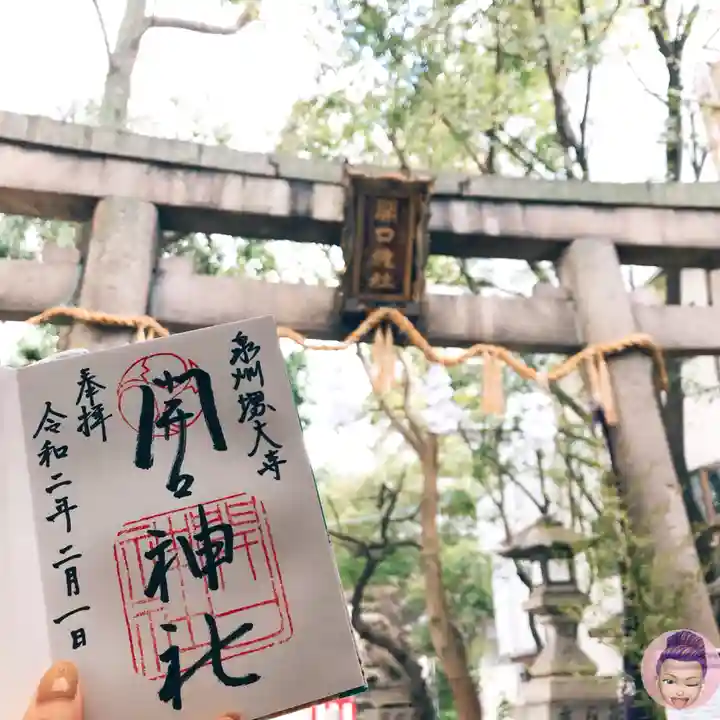 開口神社
泉州堺大寺
開口神社
奉拝
令和二年二月一日
開口神社